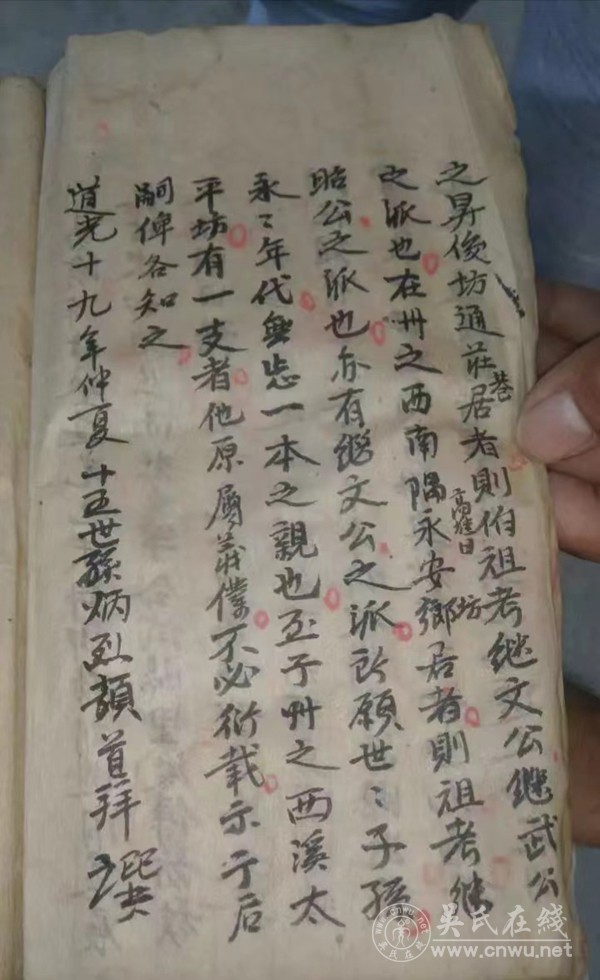 之昇俊坊通莊巷居者則伯祖考继文公继武公
之派也在州之西南隅永安鄉坊居者則祖考继
昭公之派也亦有继文公之派所願世〻子孫
永〻年代無忘一本之親也至于州之西溪太
平坊有一支者他原屬義僕不必衍載示于后
嗣俾各知之
道光十九年仲夏十五世孫炳烈頓首拜譔
吳氏在线
www.cnwu.net